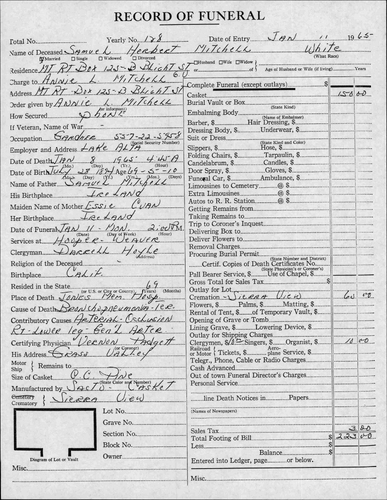 RECORD OF FUNERAL
Total No. Yearly No. 128 Date of Entry JAN 11 1965
Name of Deceased SAMUEL Herbert Mitchell White
Married Single Widowed Divorced Husband Wife Widow
Residence MT RT Box 125-B Blight ST Age of Husband or Wife (if living) Years
Charge to ANNIE L Mitchell G.V.
Address MT RT Box 125-B Blight ST
Order given by ANNIE L. Mitchell
How Secured Phone
If Veteran, Name of War
Occupation GARDNER 557-22-5758
(Social Security Number)
Employer and Address LAKE ALTA
Date of Death JAN 8 1965 4:45 A
Date of Birth July 28 Age 69-5-10
Name of Father SAMUEL Mitchell
His Birthplace IRELAND
Maiden Name of Mother ESSIE
Her Birthplace IRELAND
Date of Funeral JAN 11-MON. 2:00 P.M.
Services at HOOPER-WEAVER
Clergyman DARRELL Hoyle
Religion of the Deceased
Birthplace CALIF.
Resided in the State 69
(or U.S. or City or County) (Years) (Months)
Place of Death JONES Mem. Hosp
Cause of Death Bronchopneumonia-
Contributory Causes ARTERIAL-Occlusion
RT-Lower leg-Gen'l Arter
Certifying Physician VERNON Padgett
His Address GRASS VALLEY
Motor
Ship Remains to
Size of Casket C.C. Pine
(State Color and Number)
Manufactured by SACTO-CASKET
Cemetery
Crematory SIERRA VIEW
Lot No.
Grave No.
Section No.
Block No.
Owner
Diagram of Lot or Vault
Misc.
Complete Funeral (except outlays) $
Casket 158 00
Burial Vault or Box
(State Kind)
Embalming Body
(Name of Embalmer)
Barber, $ Hair Dressing, $
Dressing Body, $ Underwear, $
Suit or Dress
(State Kind and Color)
Slippers, $ Hose, $
Folding Chairs, $ Tarpaulin, $
Candelabrum, $ Candles, $
Door Spray, $ Gloves, $
Funeral Car, $ Ambulance, $
Limousines to Cemetery @ $
Extra Limousines @ $
Autos to R. R. Station @ $
Getting Remains from
Taking Remains to
Trip to Coroner's Inquest
Delivering Box to
Deliver Flowers to
Removal Charges
Procuring Burial Permit
(State Number and District)
Certif. Copies of Death Certificates No.
(State Physician's or Coroner's)
Pall Bearer Service, $ Use of Chapel, $
Gross Total for Sales Tax $
Outlay for Lot
Cremation SIERRA VIEW 60 00
Flowers, $ Palms, $ Matting, $
Rental of Tent, $ of Temporary Vault, $
Opening of Grave or Tomb
Lining Grave, $ Lowering Device, $
Outlay for Shipping Charges
Clergymen, $ Singers, $ Organist, $
Railroad Aero-
or Motor $ Tickets, $ plane Service, $
Teleg., Phone, Cable or Radio Charges
Cash Advanced
Out of town Funeral Director's Charges
Personal Service
line Death Notices in Papers
(Names of Newspapers)
Sales Tax
Total Footing of Bill $
Less $
Balance $
Entered into Ledger, page or below.
Misc.